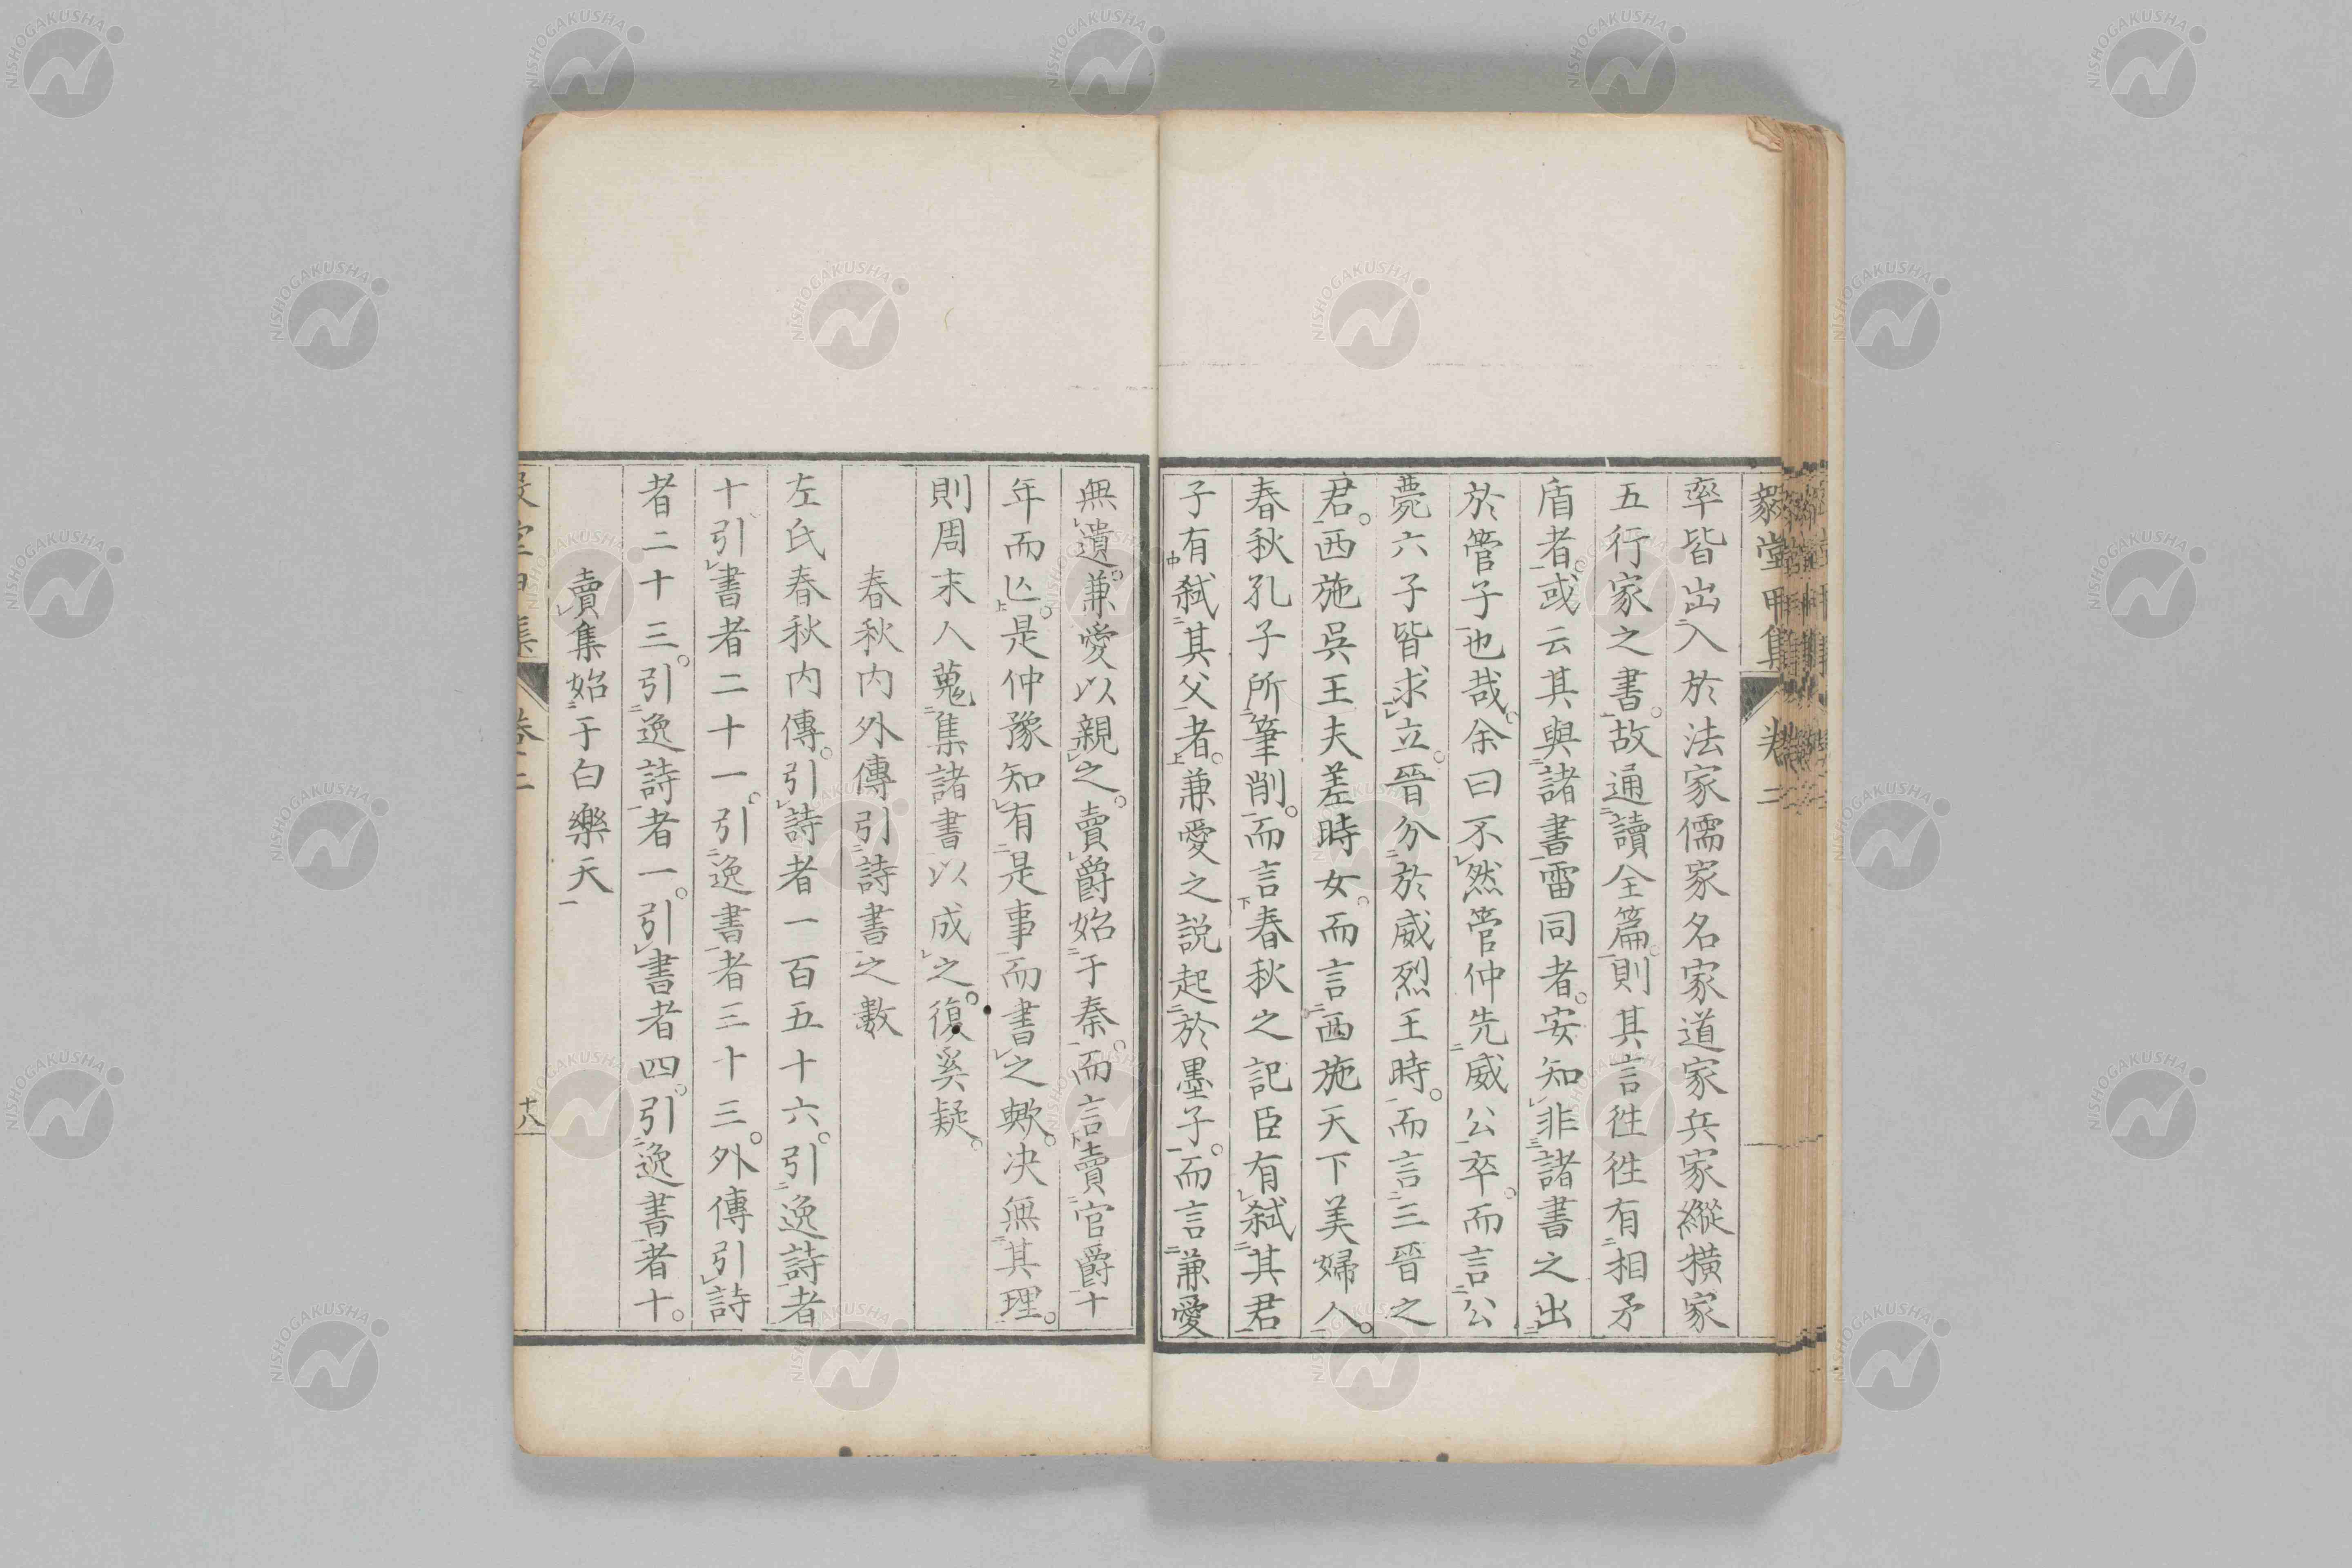 毅堂甲集 卷二
率皆出入於法家儒家名家道家兵家縱橫家
五行家之書。故通讀全篇。則其言徃徃有相矛
盾者。或云其與諸書雷同者。安知非諸書之出
於管子也哉。余曰不然管仲先威公卒。而言公
薨六子皆求立。晉分於威烈王時。而言三晉之
君。西施吳王夫差時女。而言西施天下美婦人。
春秋孔子所筆削。而言春秋之記臣有弑其君
子有弑其父者。兼愛之説起於墨子。而言兼愛
無遺。兼愛以親之。賣爵始于秦。而言賣官爵十
年而亾。是仲豫知有是事而書之歟。决無其理。
則周末人蒐集諸書以成之。復奚疑。
春秋内外傳引詩書之數
左氏春秋内傳。引詩者一百五十六。引逸詩者
十引書者二十一。引逸書者三十三。外傳引詩
者二十三。引逸詩者一。引書者四。引逸書者十。
賣集始于白樂天
十八
NISHOGAKUSHA